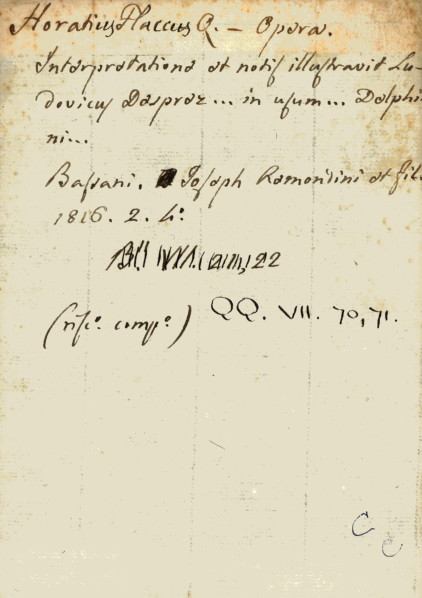 Horatius Flaccus Q. — Opera.
Interpretatione et notis illustravit Lu-
dovicus Desprez ... in usum ... Delphi-
ni...
Bassani. Joseph Remondini et fil.
1816. 2. 4º.
22
(risº. compº.) QQ. VII. 70, 71.
C
C